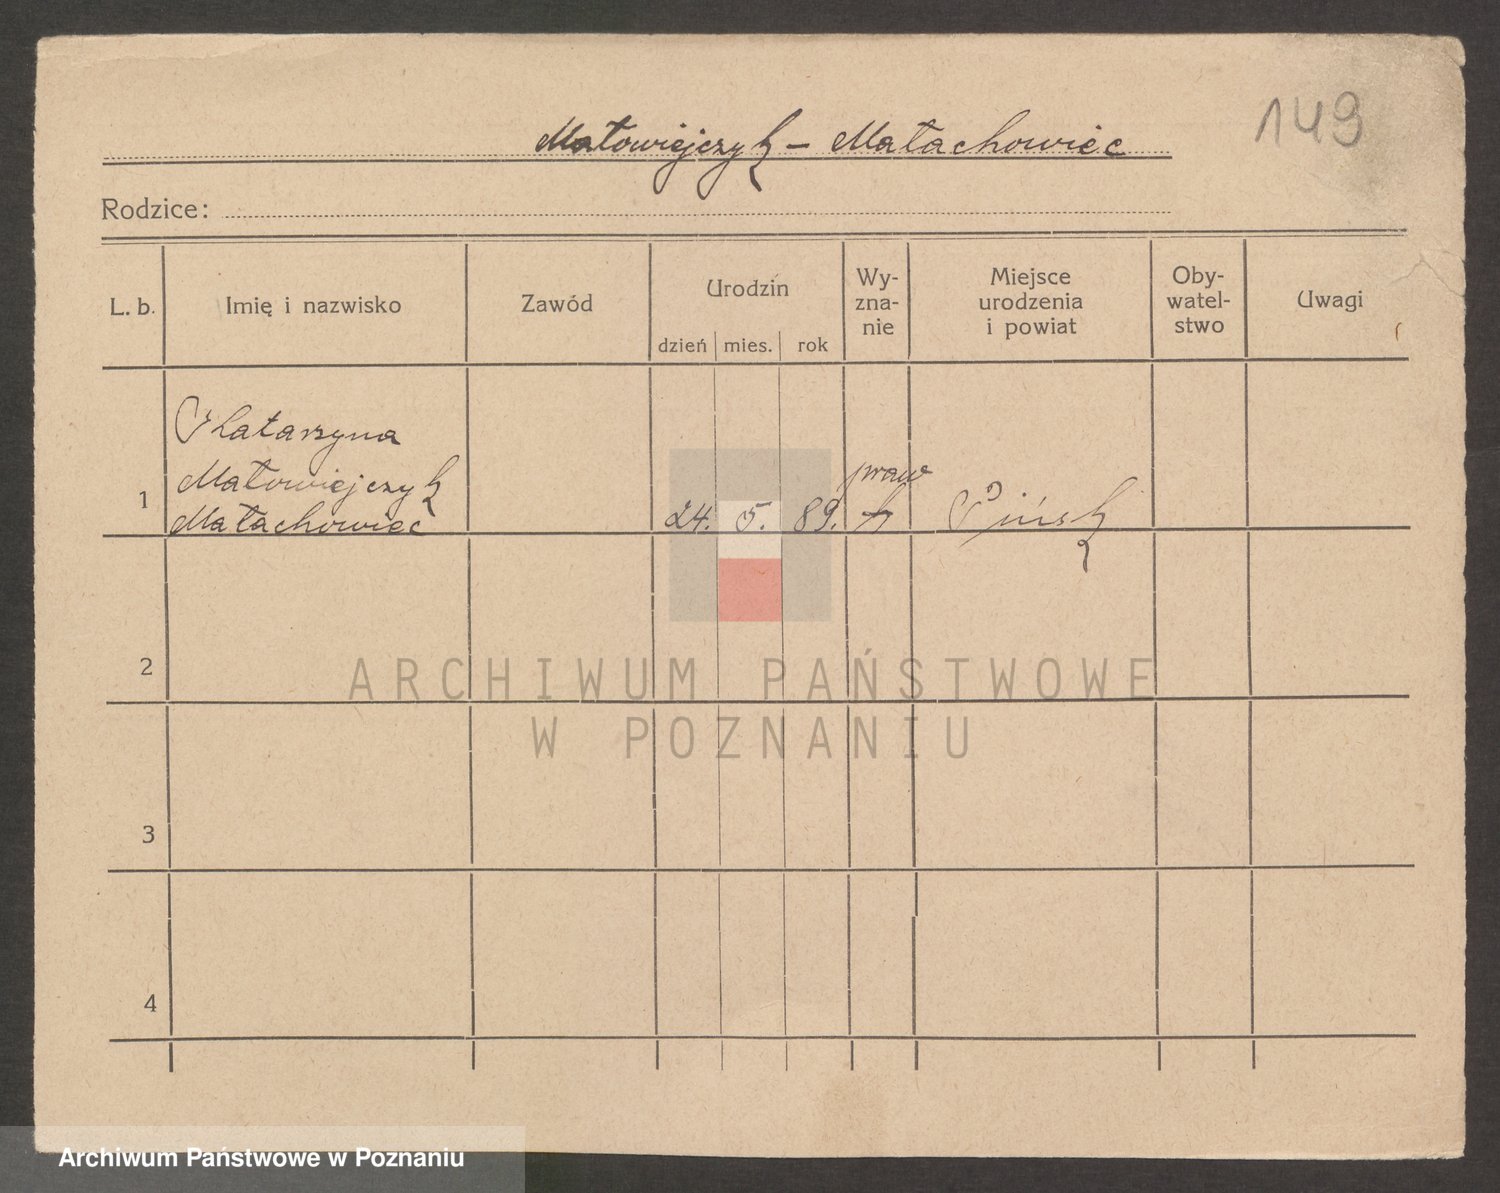 149
Małowiejczyk – Małachowiec
Rodzice:
L. b.
Imię i nazwisko
Zawód
Urodzin
dzień
mies.
rok
Wy-
zna-
nie
Miejsce
urodzenia
i powiat
Oby-
watel-
stwo
Uwagi
1
Katarzyna
Małowiejczyk
Małachowiec
24. 5. 89.
praw
Pińsk
2
3
4
ARCHIWUM PAŃSTWOWE
W POZNANIU
Archiwum Państwowe w Poznaniu